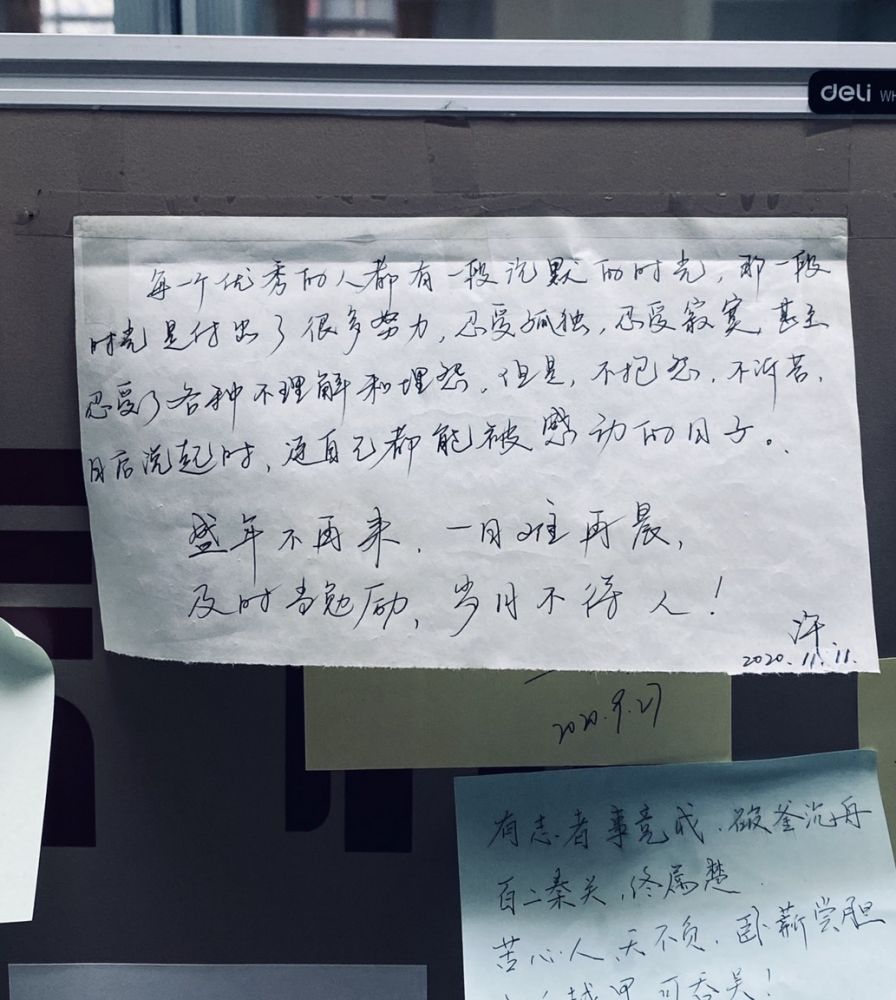 deli WH
每一个优秀的人都有一段沉默的时光，那一段
时光是付出了很多努力，忍受孤独，忍受寂寞，甚至
忍受了各种不理解和埋怨。但是，不抱怨，不诉苦，
日后说起时，连自己都能被感动的日子。
盛年不再来，一日难再晨，
及时当勉励，岁月不待人！
许
2020.11.11.
2020.9.27
有志者事竟成，破釜沉舟
百二秦关，终属楚.
苦心人天不负，卧薪尝胆
越甲可吞吴！